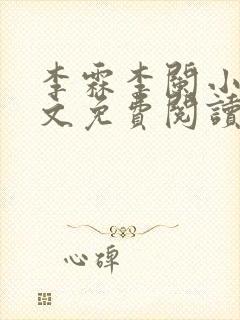 李霖李闌小
文免費閱讀
心碑